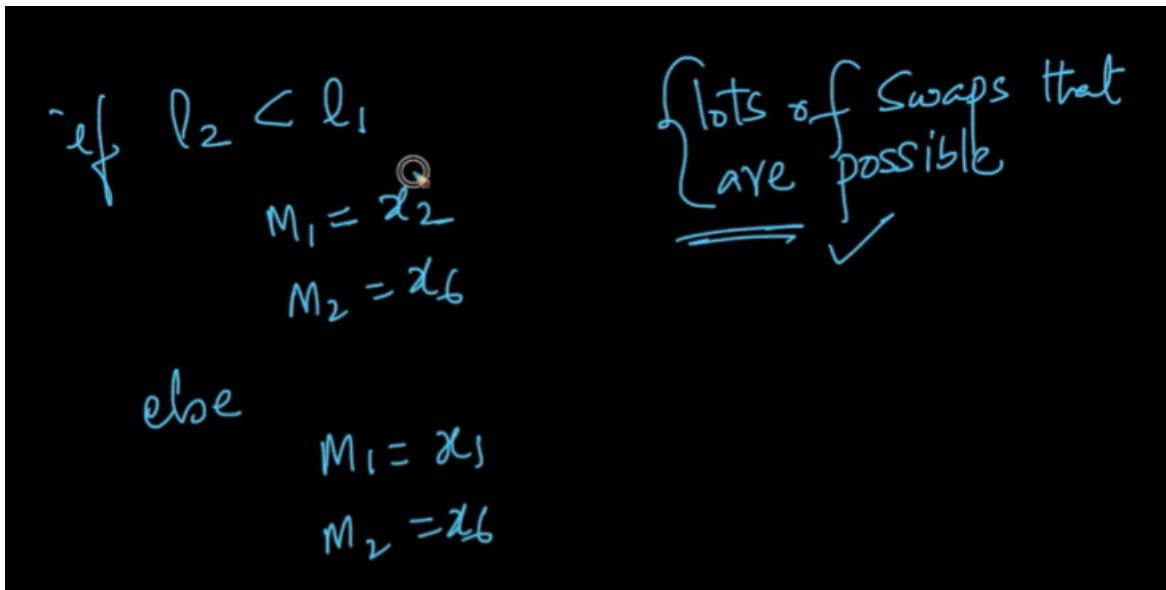 if l₂ < l₁
M₁ = x₂
M₂ = x₆
else
M₁ = x₁
M₂ = x₆
lots of swaps that
are possible